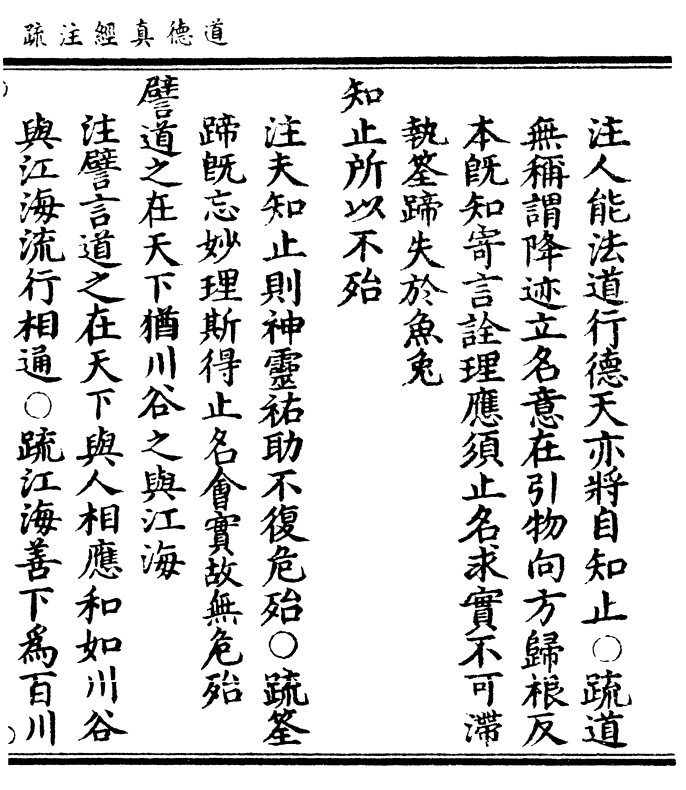 道德真經注疏
注人能法道行德天亦將自知止○疏道
無稱謂降迹立名意在引物向方歸根反
本既知寄言詮理應須止名求實不可滯
執筌蹄失於魚兔
知止所以不殆
注夫知止則神靈祐助不復危殆○疏筌
蹄既忘妙理斯得止名會實故無危殆
譬道之在天下猶川谷之與江海
注譬言道之在天下與人相應和如川谷
與江海流行相通○疏江海善下為百川